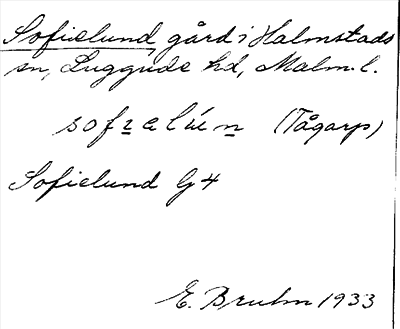 Sofielund, gård i Halmstads
sn, Luggude hd, Malm. l.
sofɪelún (Tågarp)
Sofielund G4
E. Bruhn 1933